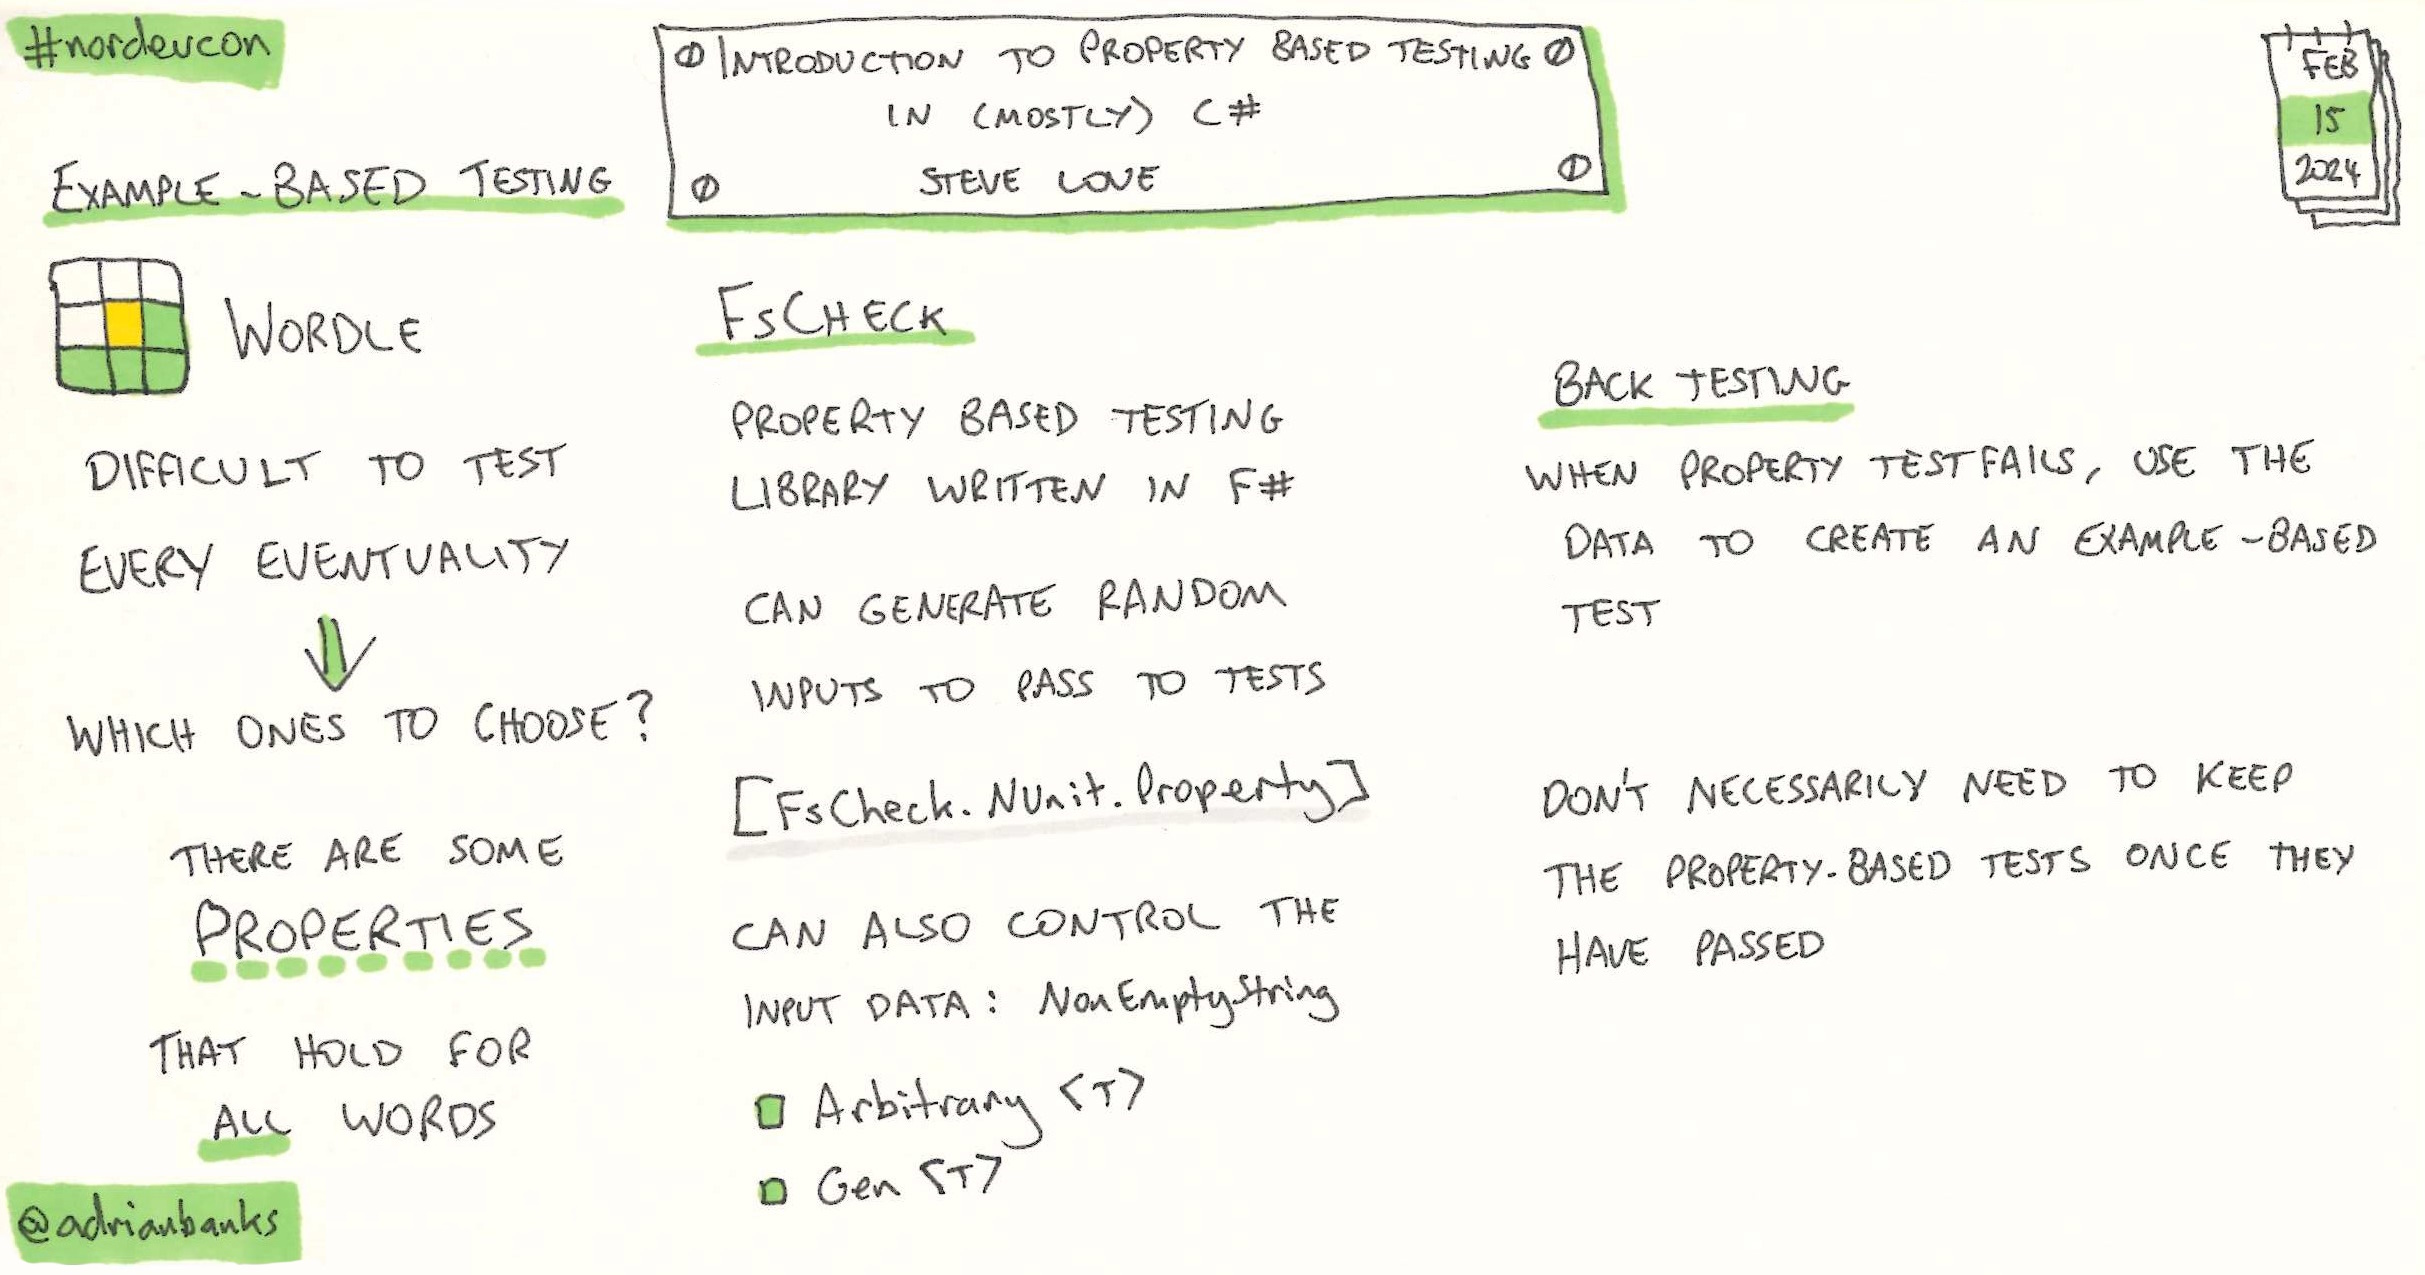 #nordevcon
INTRODUCTION TO PROPERTY BASED TESTING
IN (MOSTLY) C#
STEVE LOVE
FEB
15
2024
EXAMPLE-BASED TESTING
WORDLE
DIFFICULT TO TEST
EVERY EVENTUALITY
WHICH ONES TO CHOOSE?
THERE ARE SOME
PROPERTIES
THAT HOLD FOR
ALL WORDS
@adrianbanks
FSCHECK
PROPERTY BASED TESTING
LIBRARY WRITTEN IN F#
CAN GENERATE RANDOM
INPUTS TO PASS TO TESTS
[FsCheck.NUnit.Property]
CAN ALSO CONTROL THE
INPUT DATA: NonEmptyString
Arbitrary <T>
Gen <T>
BACK TESTING
WHEN PROPERTY TEST FAILS, USE THE
DATA TO CREATE AN EXAMPLE-BASED
TEST
DON'T NECESSARILY NEED TO KEEP
THE PROPERTY-BASED TESTS ONCE THEY
HAVE PASSED